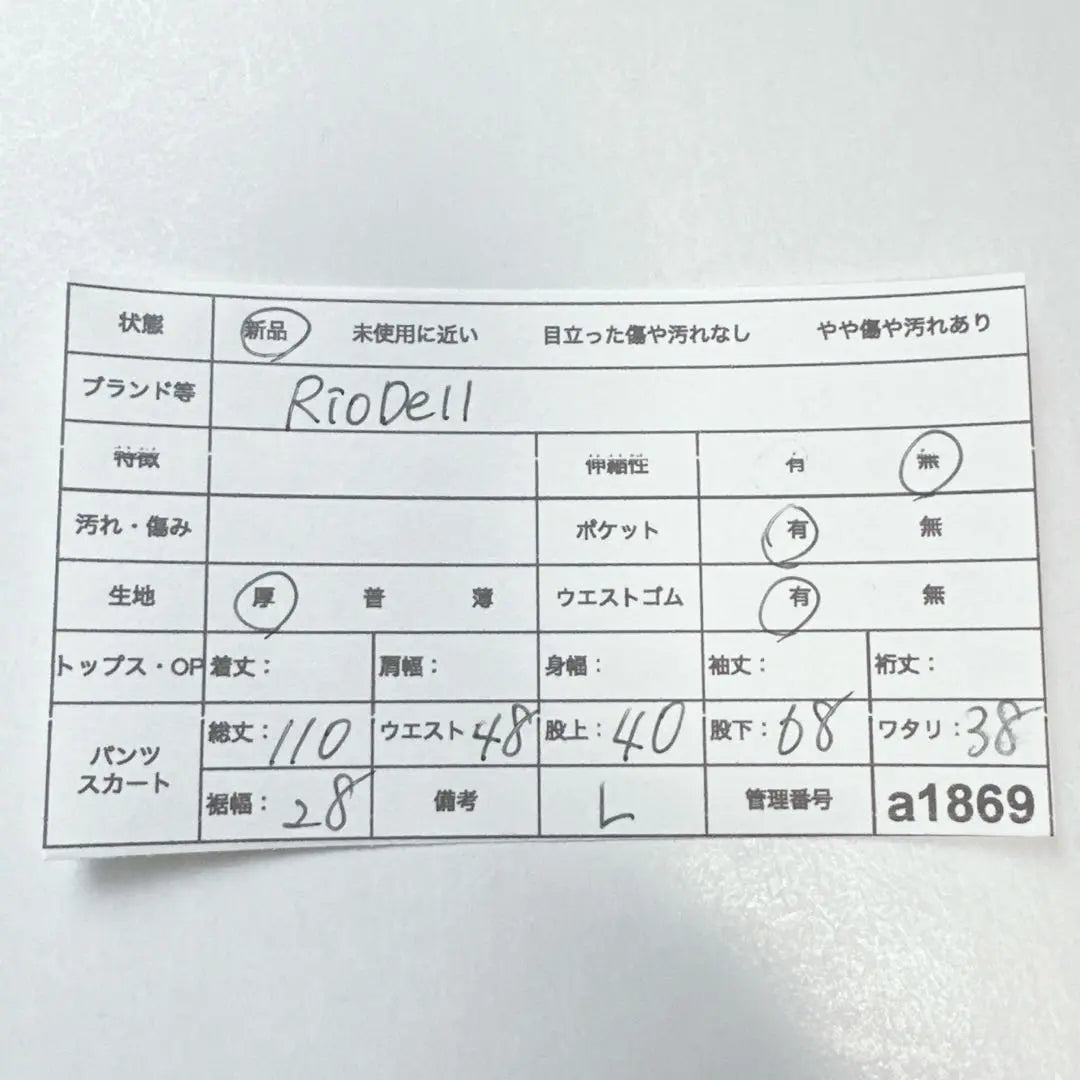 状態 新品 未使用に近い 目立った傷や汚れなし やや傷や汚れあり
ブランド等 RioDell
特徴 伸縮性 有 無
汚れ・傷み ポケット 有 無
生地 厚 普 薄 ウエストゴム 有 無
トップス・OP 着丈： 肩幅： 身幅： 袖丈： 裄丈：
パンツ スカート 総丈：110 ウエスト 48 股上：40 股下：68 ワタリ：38
裾幅：28 備考 L 管理番号 a1869